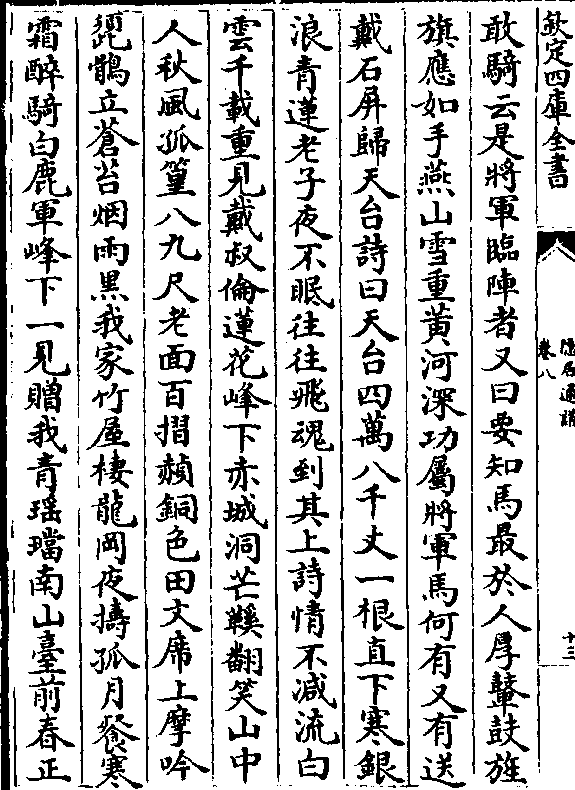 欽定四庫全書
隱居通議
卷八
十三
敢騎云是將軍臨陣者又曰要知馬最於人厚鼙鼓旌
旗應如手燕山雪重黃河深功屬將軍馬何有又有送
戴石屏歸天台詩曰天台四萬八千丈一根直下寒銀
浪青蓮老子夜不眠往往飛魂到其上詩情不減流白
雲千載重見戴叔倫蓮花峰下赤城洞芒鞵翻笑山中
人秋風孤篁八九尺老面百摺赬銅色田文席上摩吟
髭鶻立蒼苔烟雨黑我家竹屋棲龍岡夜擣孤月餐寒
霜醉騎白鹿軍峰下一見贈我青瑶璫南山臺前春正